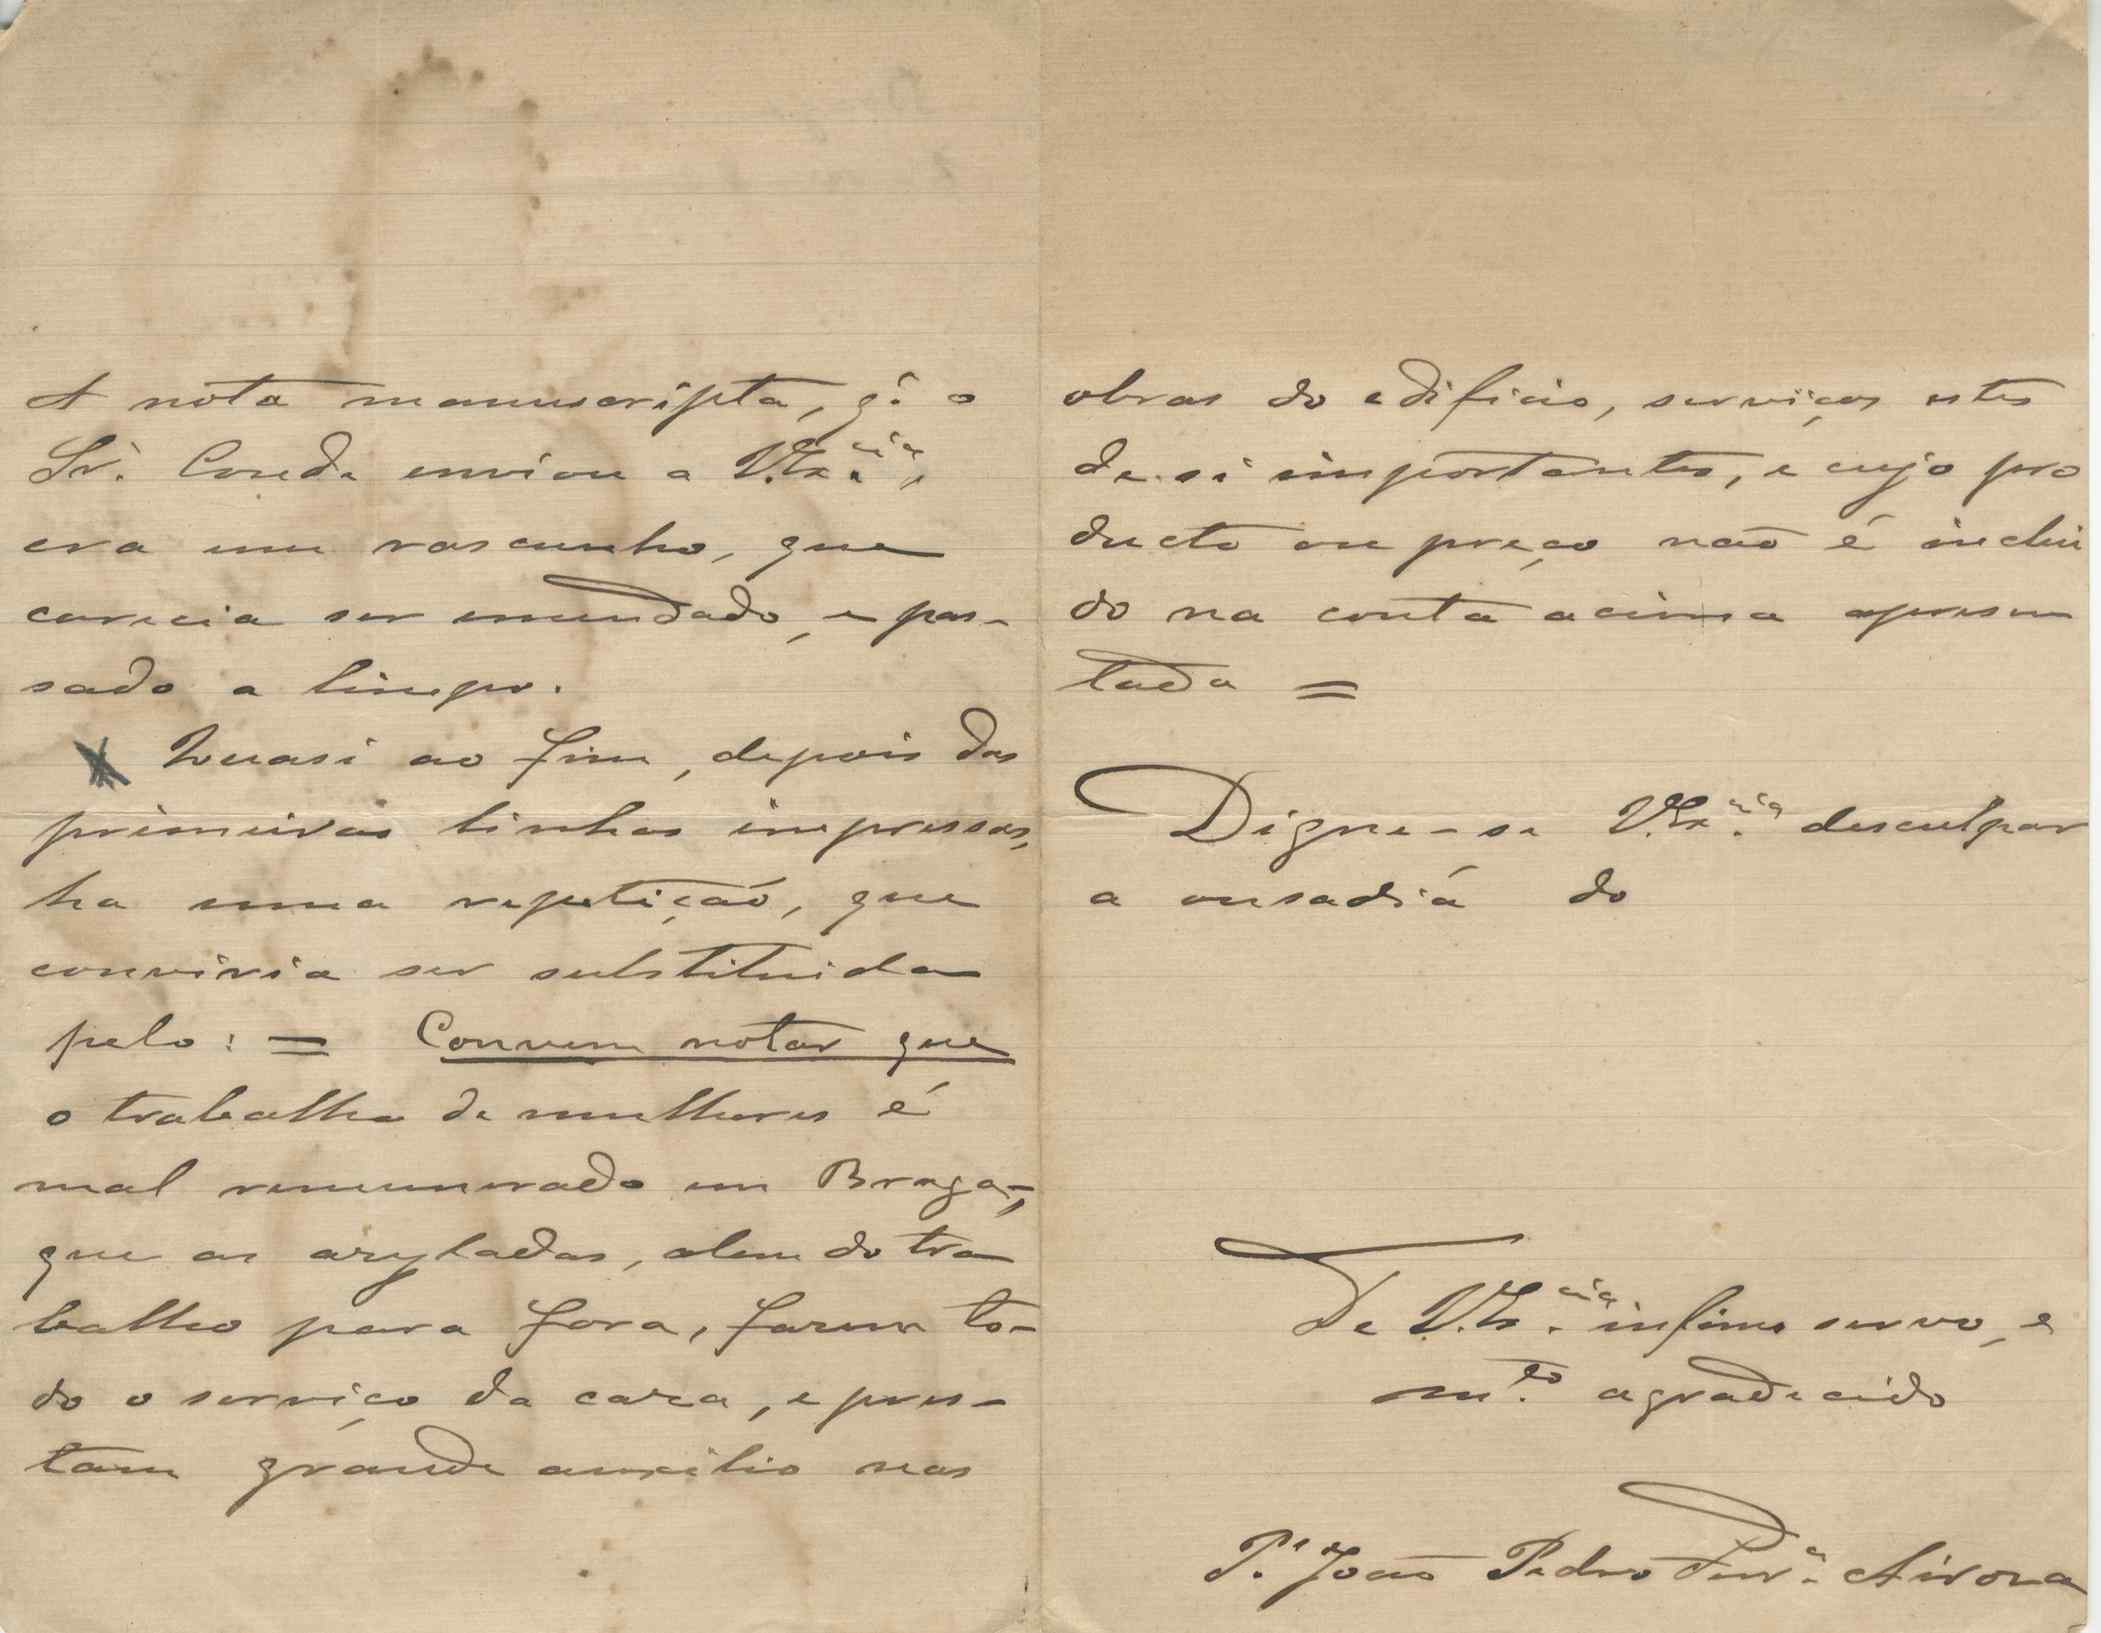 A nota manuscripta, q.e o
Sr. Conde enviou a V.Ex.cia,
era um rascunho, que
carecia ser emendado, e pas-
sado a limpo.
Quasi ao fim, depois das
primeiras linhas impressas,
ha uma repetição, que
conviria ser substituida
pelo: = Convem notar que
o trabalho de mulheres é
mal remunerado em Braga;
que as asyladas, alem do tra
balho para fora, fazem to-
do o serviço da caza, e pres-
tam grande auxilio nas
obras do edificio, serviços estes
de si importantes, e cujo pro
ducto ou preço não é inclui
do na conta acima apresen
tada =
Digne-se V.Ex.cia desculpar
a ousadia do
De V.Ex.cia infimo servo, e
m.to agradecido
P.e João Pedro Ferr.a Airosa